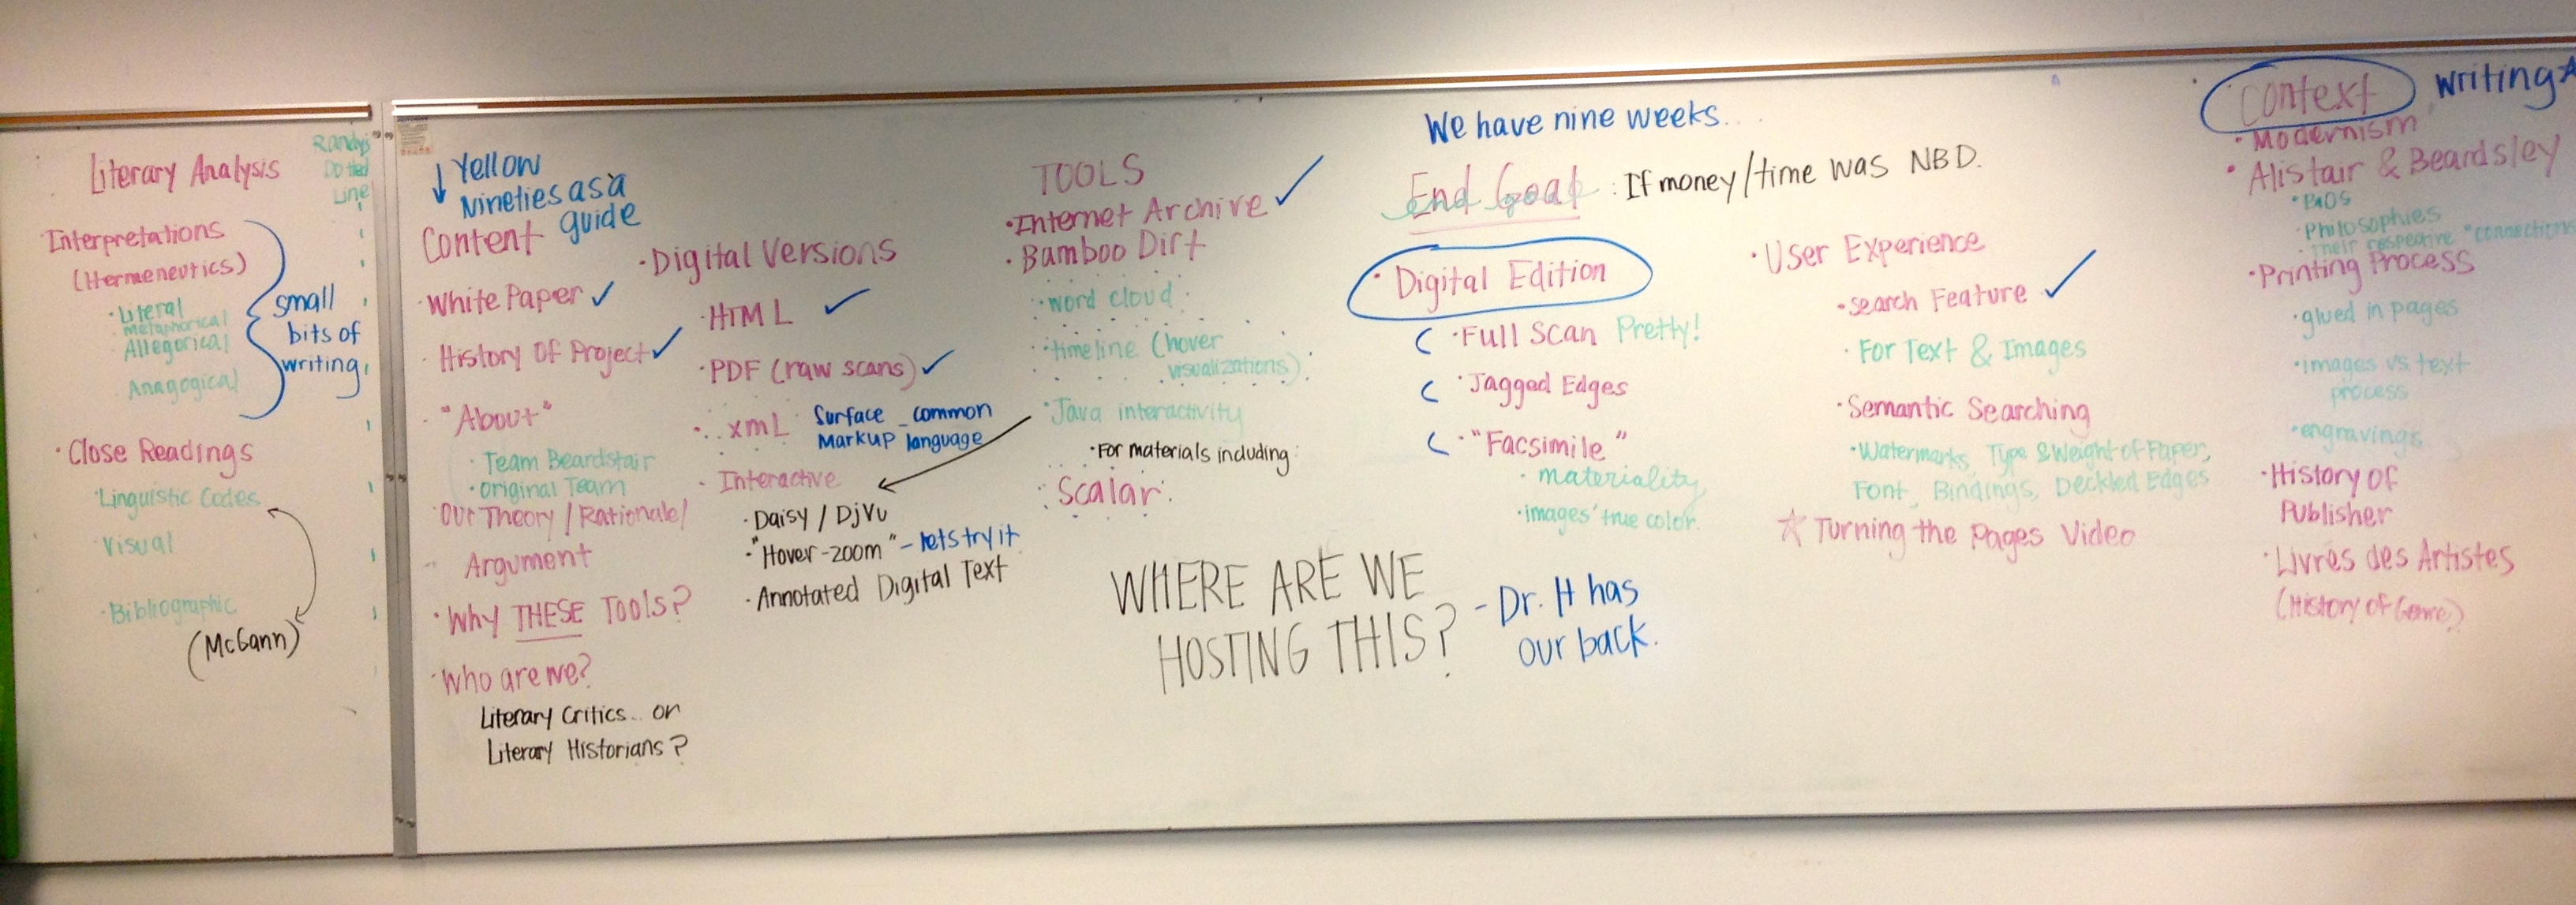 Literary Analysis
Interpretations
(Hermeneutics)
· Literal
metaphorical
· Allegorical
· Anagogical
small
bits of
writing
· Close Readings
· Linguistic Codes
· Visual
· Bibliographic
(McGann)
Randy's
Dotted
Line
↓ Yellow
Nineties as a
guide
Content
· White Paper ✓
· History Of Project ✓
· "About"
· Team Beardstair
· Original Team
Our Theory / Rationale /
Argument
· Why THESE Tools?
· Who are we?
Literary Critics... or
Literary Historians?
· Digital Versions
· HTML ✓
· PDF (raw scans) ✓
· XML Surface _ common
Markup language
· Interactive
· Daisy / DjVu
· "Hover-zoom" - lets try it
· Annotated Digital Text
TOOLS
· Internet Archive ✓
· Bamboo Dirt
· word cloud
· timeline (hover
visualizations)
· Java interactivity
· For materials including:
Scalar
WHERE ARE WE
HOSTING THIS?
- Dr. H has
our back.
We have nine weeks...
End Goal : If money/time was NBD.
· Digital Edition
· Full Scan Pretty!
· Jagged Edges
· "Facsimile"
· materiality
· images' true color.
· User Experience
· Search Feature ✓
· For Text & Images
· Semantic Searching
· Watermarks, Type & Weight of Paper,
Font, Bindings, Deckled Edges
☆ Turning the Pages Video
Context
writing
· Modernism
· Alistair & Beardsley
· BIOS
· Philosophies
· Their respective "connections
· Printing Process
· glued in pages
· images vs text
process
· engravings
· History of
Publisher
· Livres des Artistes
(History of Genre)